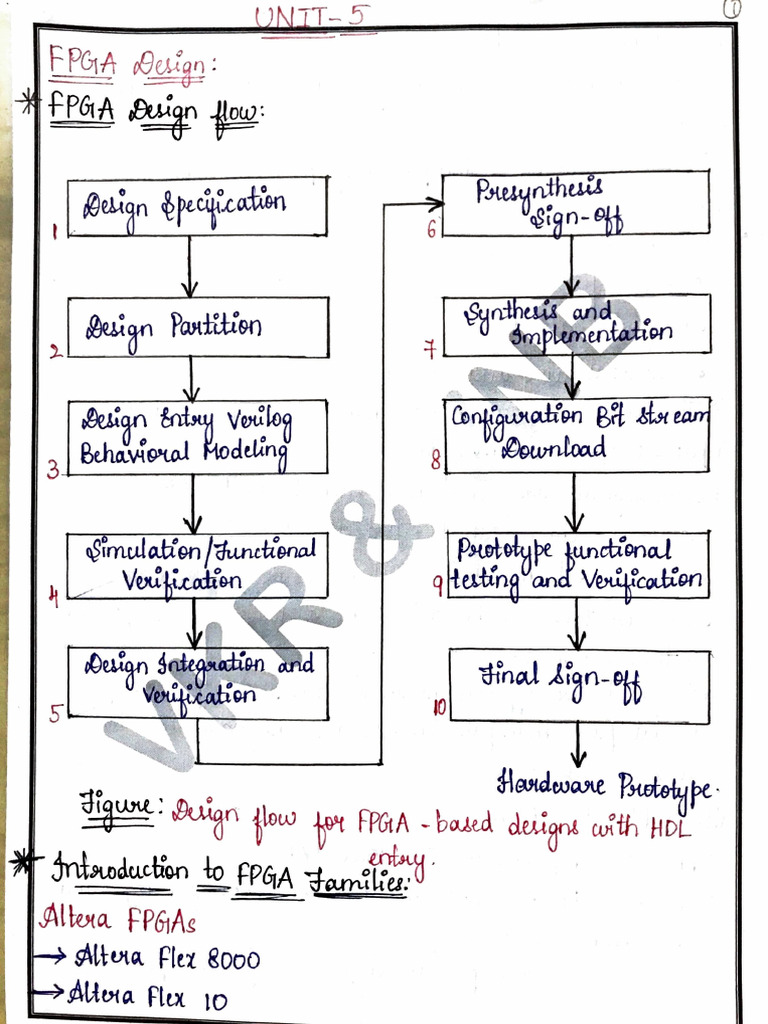 UNIT-5
1
FPGA Design:
* FPGA Design flow:
1 Design Specification
2 Design Partition
3 Design Entry Verilog
Behavioral Modeling
4 Simulation/Functional
Verification
5 Design Integration and
Verification
6 Presynthesis
Sign-off
7 Synthesis and
Implementation
8 Configuration Bit Stream
Download
9 Prototype functional
testing and Verification
10 Final Sign-off
Hardware Prototype.
VKR & VNB
Figure: Design flow for FPGA-based designs with HDL
entry.
* Introduction to FPGA Families:
Altera FPGAs
→ Altera Flex 8000
→ Altera Flex 10